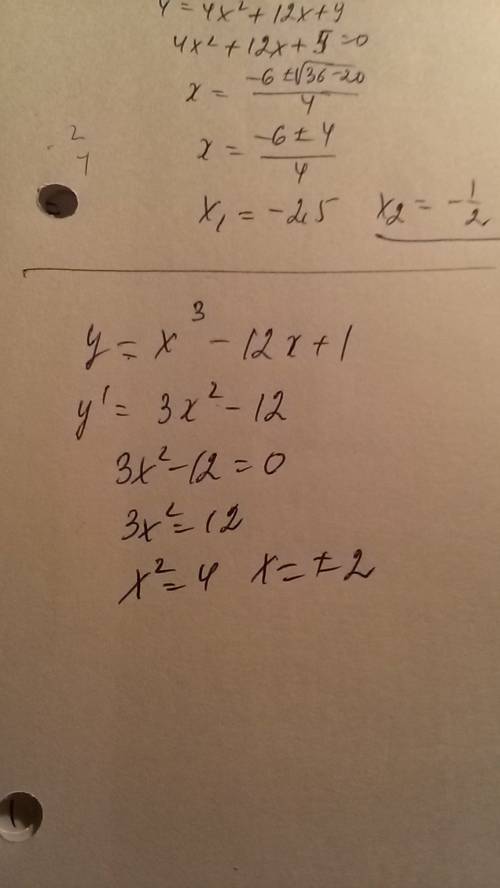 4 = 4x² + 12x + 9
4x² + 12x + 5 = 0
x = (-6 ± √(36 - 20)) / 4
x = (-6 ± 4) / 4
x₁ = -2,5 x₂ = -1/2
- 2
7
y = x³ - 12x + 1
y' = 3x² - 12
3x² - 12 = 0
3x² = 12
x² = 4 x = ± 2